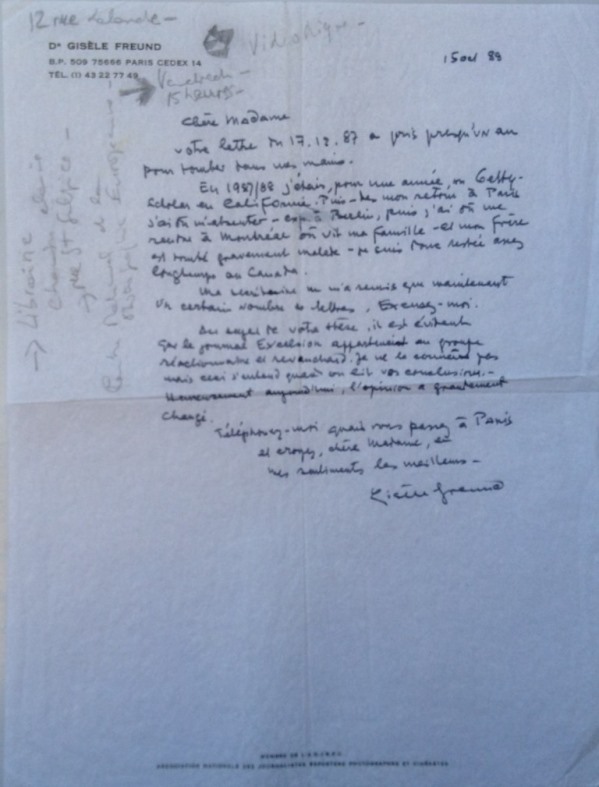 12 rue Lalande -
Vidéothèque -
Dr GISÈLE FREUND
B.P. 509 75666 PARIS CEDEX 14
TÉL. (1) 43 22 77 49
Vendredi -
15 heures -
→ Librairie
Chambre claire
rue St Sulpice -
→
Photographie Européenne -
89
Chère Madame
votre lettre du 17.12.87 a pris presqu'un an
pour tomber dans mes mains.
En 1987/88 j'étais, pour une année, un Getty-
Scholar en Californie. Puis - dès mon retour à Paris
j'ai dû m'absenter - à Berlin, puis j'ai dû me
rendre à Montréal où vit ma famille - et mon frère
est tombé gravement malade - je suis donc restée assez
longtemps au Canada.
Une secrétaire ne m'a remis que maintenant
un certain nombre de lettres, Excusez-moi.
Au sujet de votre thèse, il est évident
que le journal Excelsior appartenait au groupe
réactionnaire et revanchard. Je ne le connais pas
mais ceci s'entend quand on lit vos conclusions. -
Heureusement aujourd'hui, l'opinion a grandement
changé.
Téléphonez-moi quand vous passez à Paris
et croyez, chère Madame, en
mes sentiments les meilleurs -
Gisèle Freund
MEMBRE DE L'A.N.J.R.P.C.
ASSOCIATION NATIONALE DES JOURNALISTES REPORTERS PHOTOGRAPHES ET CINÉASTES